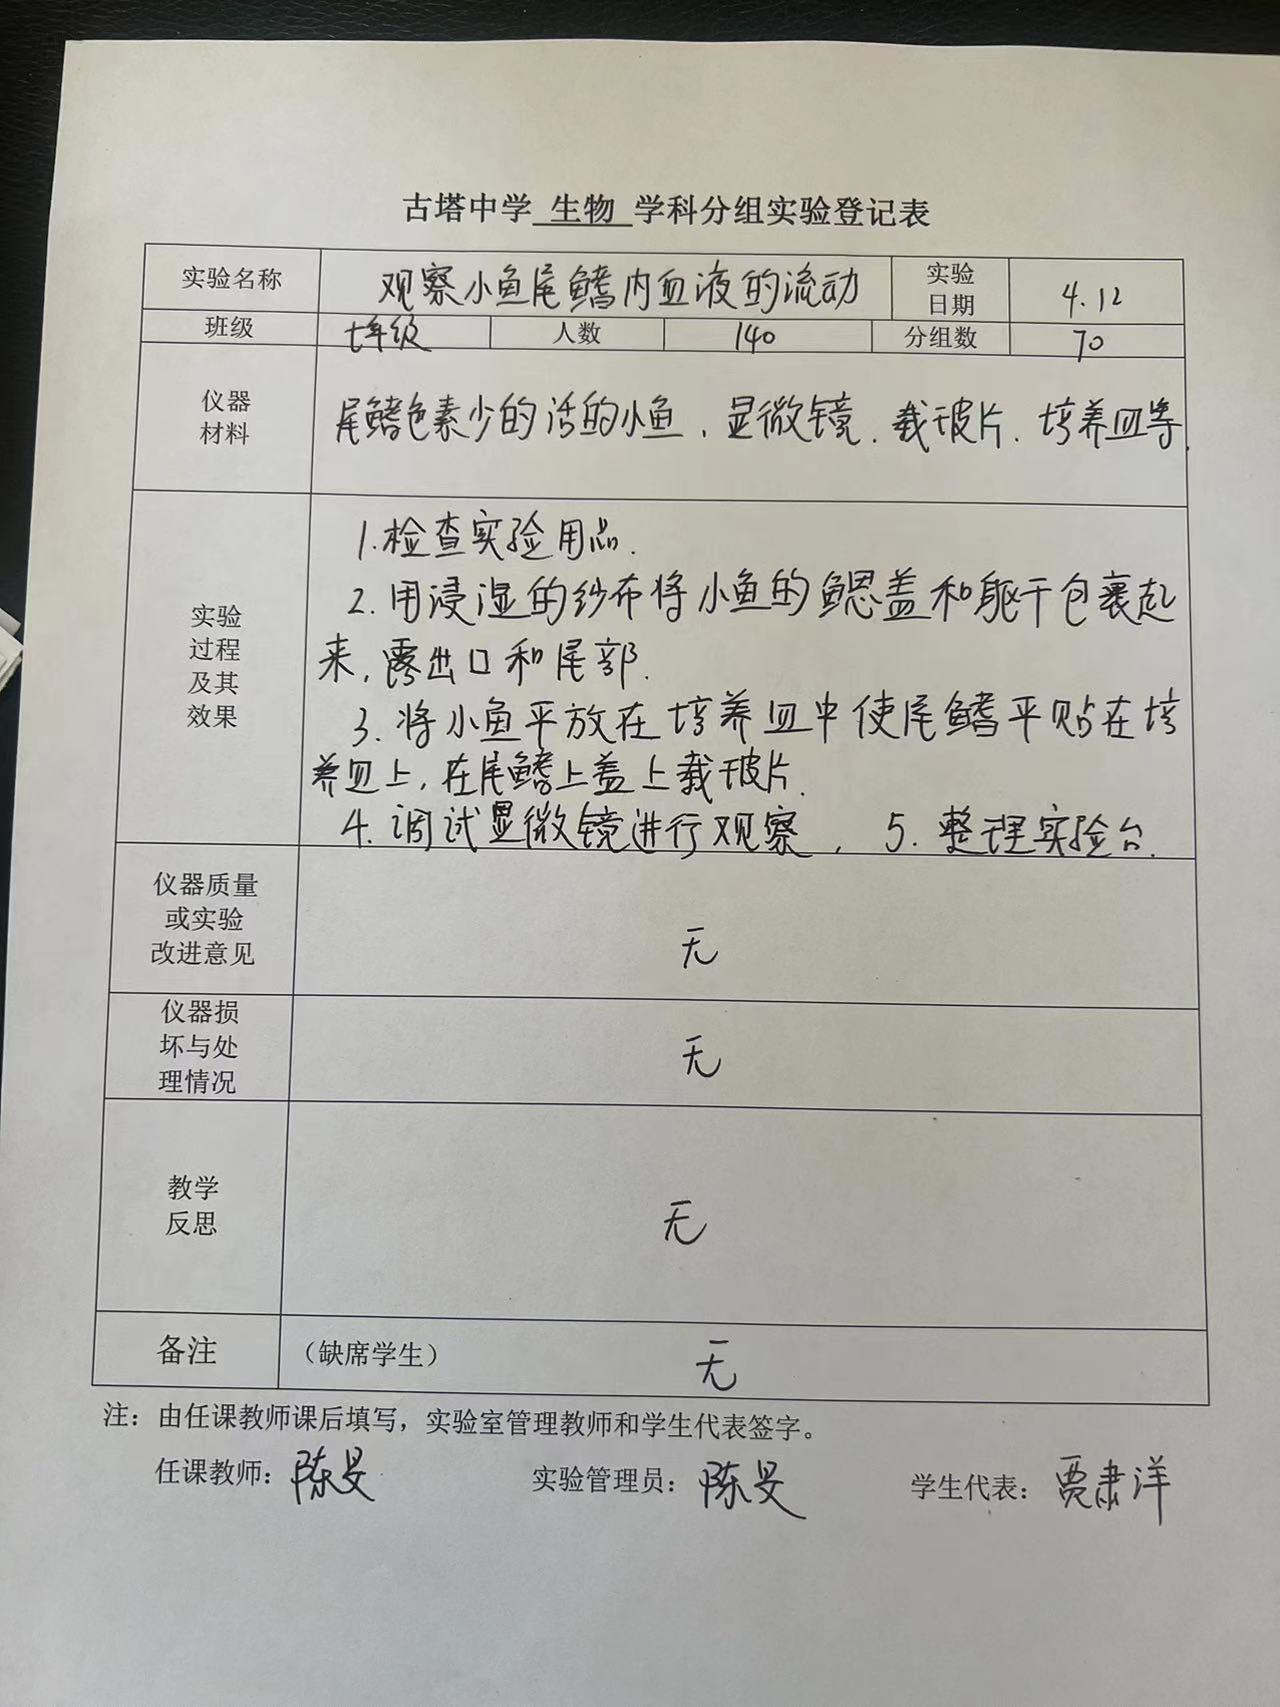 古塔中学 生物 学科分组实验登记表
实验名称 观察小鱼尾鳍内血液的流动 实验日期 4.12
班级 七年级 人数 140 分组数 70
仪器
材料
尾鳍色素少的活的小鱼、显微镜、载玻片、培养皿等.
实验
过程
及其
效果
1.检查实验用品.
2.用浸湿的纱布将小鱼的鳃盖和躯干包裹起
来,露出口和尾部.
3.将小鱼平放在培养皿中使尾鳍平贴在培
养皿上,在尾鳍上盖上载玻片.
4.调试显微镜进行观察, 5.整理实验台.
仪器质量
或实验
改进意见
无
仪器损
坏与处
理情况
无
教学
反思
无
备注 (缺席学生) 无
注：由任课教师课后填写，实验室管理教师和学生代表签字。
任课教师：陈旻 实验管理员：陈旻 学生代表：贾肃洋